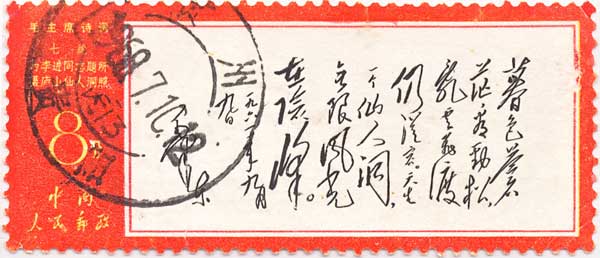 毛主席诗词
七绝
为李进同志题所
摄庐山仙人洞照
8分
中国
人民邮政
1969.7.12
暮色苍
茫看劲松
乱云飞渡
仍从容。天生
一个仙人洞，
无限风光
在险峰。
一九六一年九月
九日
毛泽东